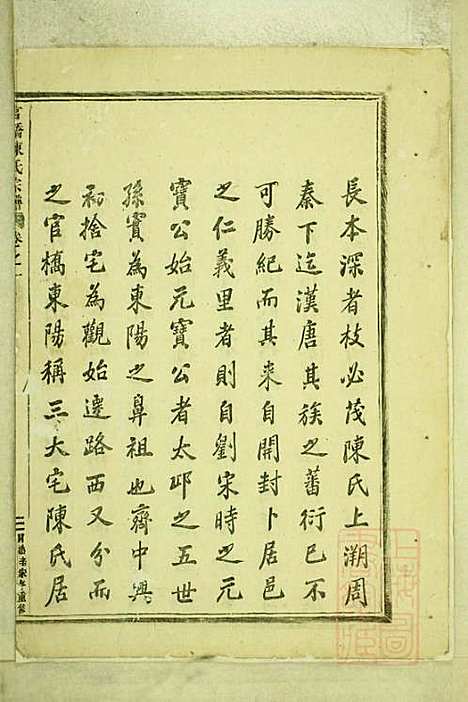 長本深者枝必茂陳氏上溯周
秦下迄漢唐其族之蕃衍已不
可勝紀而其來自開封卜居邑
之仁義里者則自劉宋時之元
寶公始元寶公者太邱之五世
孫實為東陽之鼻祖也齊中興
初捨宅為觀始遷路西又分而
之官橋東陽稱三大宅陳氏居
官橋陳氏宗譜 卷之一